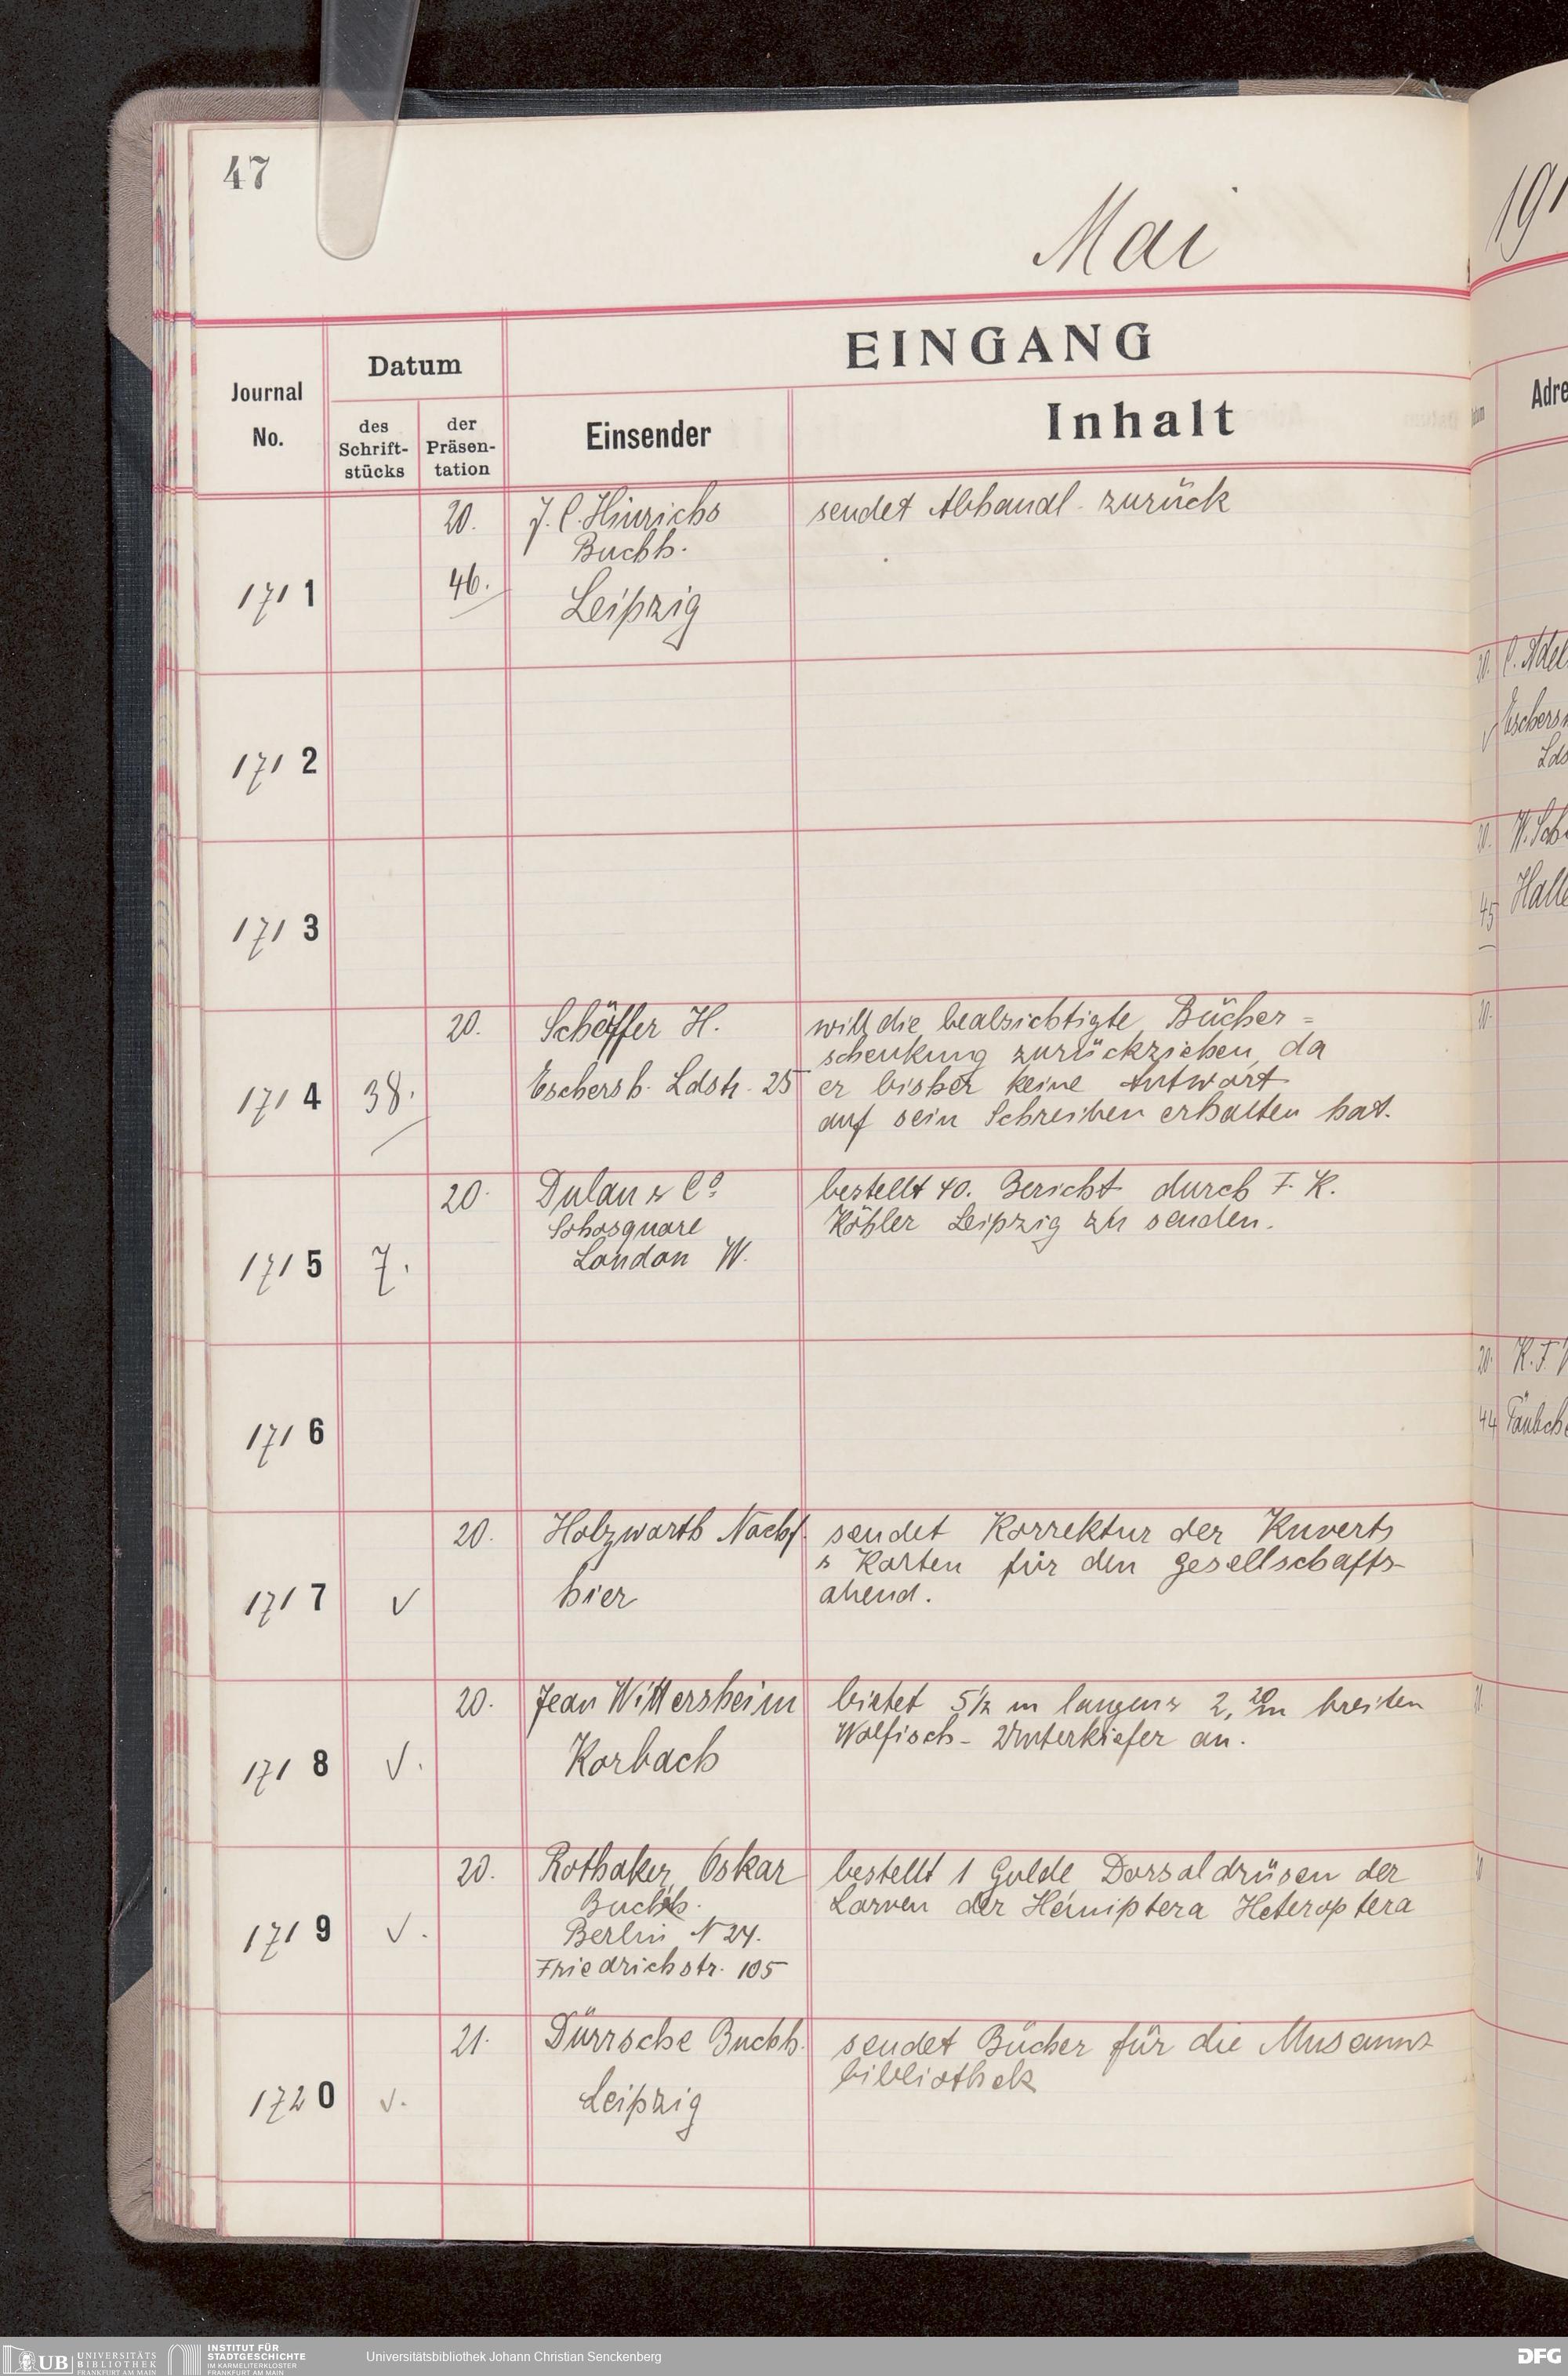 47
Mai
191
EINGANG
Journal No.
Datum
des Schrift-
stücks
der Präsen-
tation
Einsender
Inhalt
Adre
1711
20.
46.
J. C. Hinrichs
Buchh.
Leipzig
sendet Abhandl. zurück
1712
20. C. Adel
Eschersh
Lds
1713
20. W. Sch
45 Halle
1714
38.
20.
Schöffer H.
Eschersh. Ldstr. 25
will die beabsichtigte Bücher=
schenkung zurückziehen, da
er bisher keine Antwort
auf sein Schreiben erhalten hat.
20.
1715
7.
20.
Dulau & Co.
Sohosquare
London W.
bestellt 40. Bericht durch F. K.
Köhler Leipzig zu senden.
1716
20. K. F.
44 Täubch
1717
20.
Holzwarth Nachf.
hier
sendet Korrektur der Kuverts
& Karten für den Gesellschafts-
abend.
1718
20.
Jean Wittersheim
Korbach
bietet 5½ m langen & 2,20 m breiten
Walfisch-Unterkiefer an.
1719
20.
Rothaker, Oskar
Buchh.
Berlin N 24.
Friedrichstr. 105
bestellt 1 Gulde Dorsaldrüsen der
Larven der Hemiptera Heteroptera
1720
21.
Dürrsche Buchh.
Leipzig
sendet Bücher für die Museums
bibliothek
UB UNIVERSITÄTS
BIBLIOTHEK
FRANKFURT AM MAIN
INSTITUT FÜR
STADTGESCHICHTE
IM KARMELITERKLOSTER
FRANKFURT AM MAIN
Universitätsbibliothek Johann Christian Senckenberg
DFG